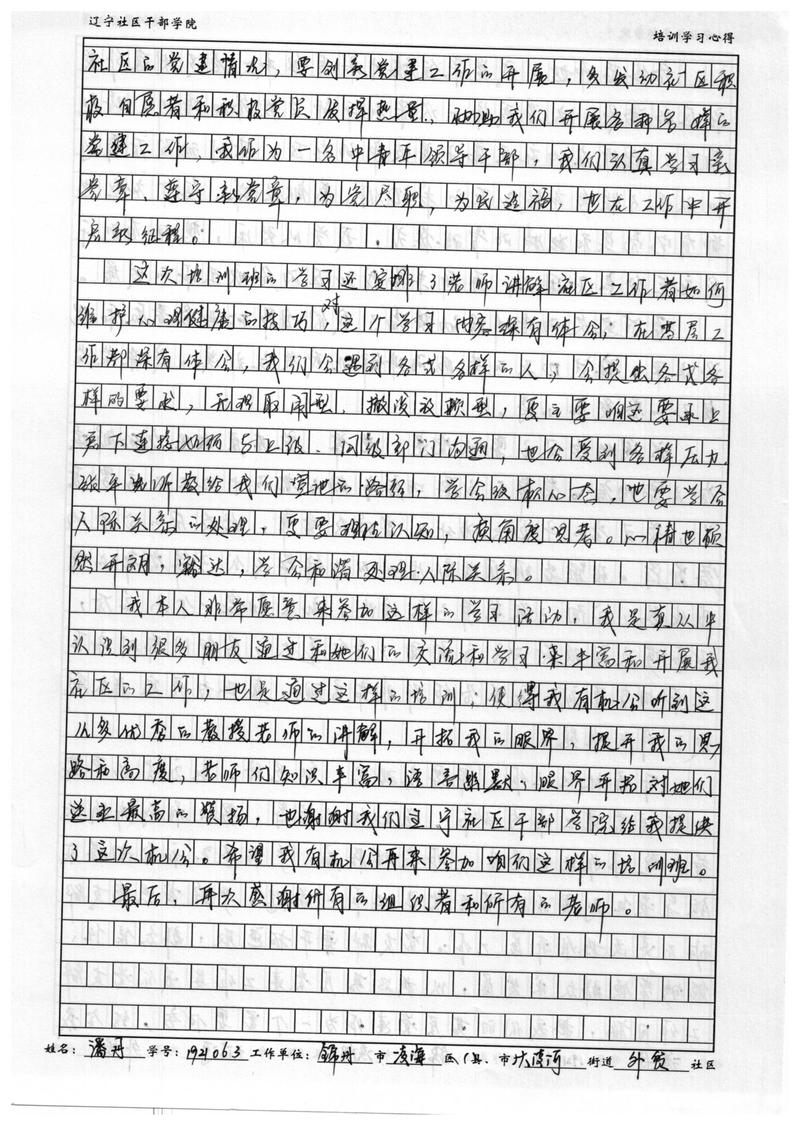 辽宁社区干部学院
培训学习心得
社区的党建情况，要创新党建工作的开展，多发动社区积
极自愿者和积极党员发挥热量，协助我们开展各种各样的
党建工作，我作为一名中青年领导干部，我们认真学习党
党章、遵守新党章，为党尽职，为民造福，也在工作中开
启新征程。
这次培训班的学习还安排了老师讲解社区工作者如何
维护心理健康的技巧，对这个学习内容深有体会，在基层工
作都深有体会，我们会遇到各式各样的人，会提出各式各
样的要求，无理取闹型、撒泼放赖型，
下连接 与上级、同级部门沟通，也会受到各种压力，
老师教给我们 的 ，学会 心态，也要学会
人际关系的处理，更要 认知，换角度思考。心情也顿
然开朗，豁达，学会和谐处理人际关系。
我本人非常愿意来参加这样的学习活动，我是真从中
认识到很多朋友通过和她们的交流和学习来丰富和开展我
社区的工作，也是通过这样的培训，使得我有机会听到这
么多优秀的教授老师的讲解，开拓我的眼界，提升我的思
路和高度，老师们知识丰富，语言幽默，眼界开拓对她们
送上最高的赞扬，也谢谢我们辽宁社区干部学院给我提供
了这次机会。希望我有机会再来参加咱们这样的培训班。
最后，再次感谢所有的组织者和所有的老师。
姓名：潘丹 学号：1921063 工作单位：锦州 市 凌海 区（县、市 大凌河 街道 外贸 社区